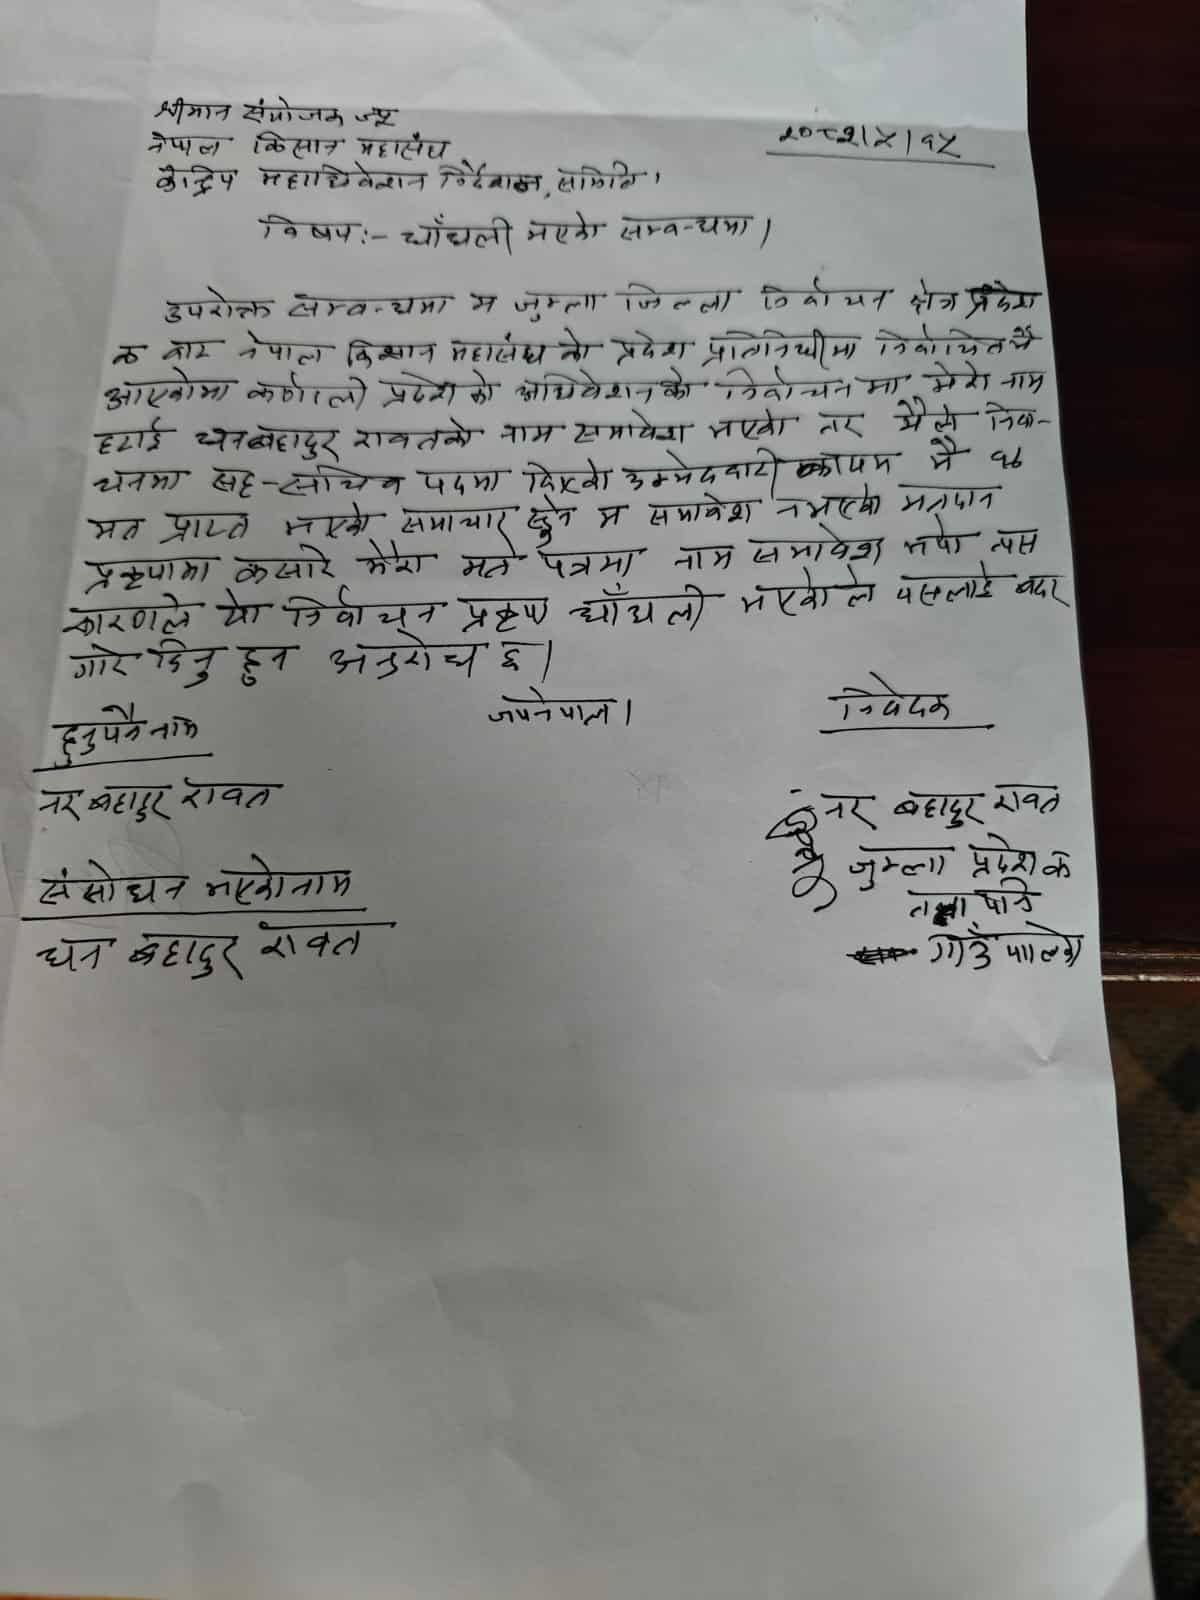 श्रीमान संयोजक ज्यू
२०८२।५।१५
नेपाल किसान महासंघ
केन्द्रिय महाधिवेशन निर्देशन समिति।
विषय:- धाँधली भएको सम्बन्धमा।
उपरोक्त सम्बन्धमा म जुम्ला जिल्ला निर्वाचन क्षेत्र प्रदेश
क बाट नेपाल किसान महासंघको प्रदेश प्रतिनिधीमा निर्वाचित भै
आएकोमा कर्णाली प्रदेश को अधिवेशनको निर्वाचन मा मेरो नाम
हटाई धनबहादुर रावतको नाम समावेश भएको तर मैले निर्वा-
चनमा सह-सचिव पदमा दिएको उम्मेदवारी कायम भै १६
मत प्राप्त भएको समाचार हुने म समावेश नभएको मतदान
प्रकृयामा कसरि मेरो मत पत्रमा नाम समावेश भयो त्यस
कारणले यो निर्वाचन प्रकृया धाँधली भएकोले यसलाई बदर
गरि दिनु हुन अनुरोध छ।
जयनेपाल।
निवेदक
हुनुपर्ने नाम
नर बहादुर रावत
नर बहादुर रावत
जुम्ला प्रदेश क
संसोधन भएको नाम
तातोपानि
धन बहादुर रावत
गाउँ पालिका